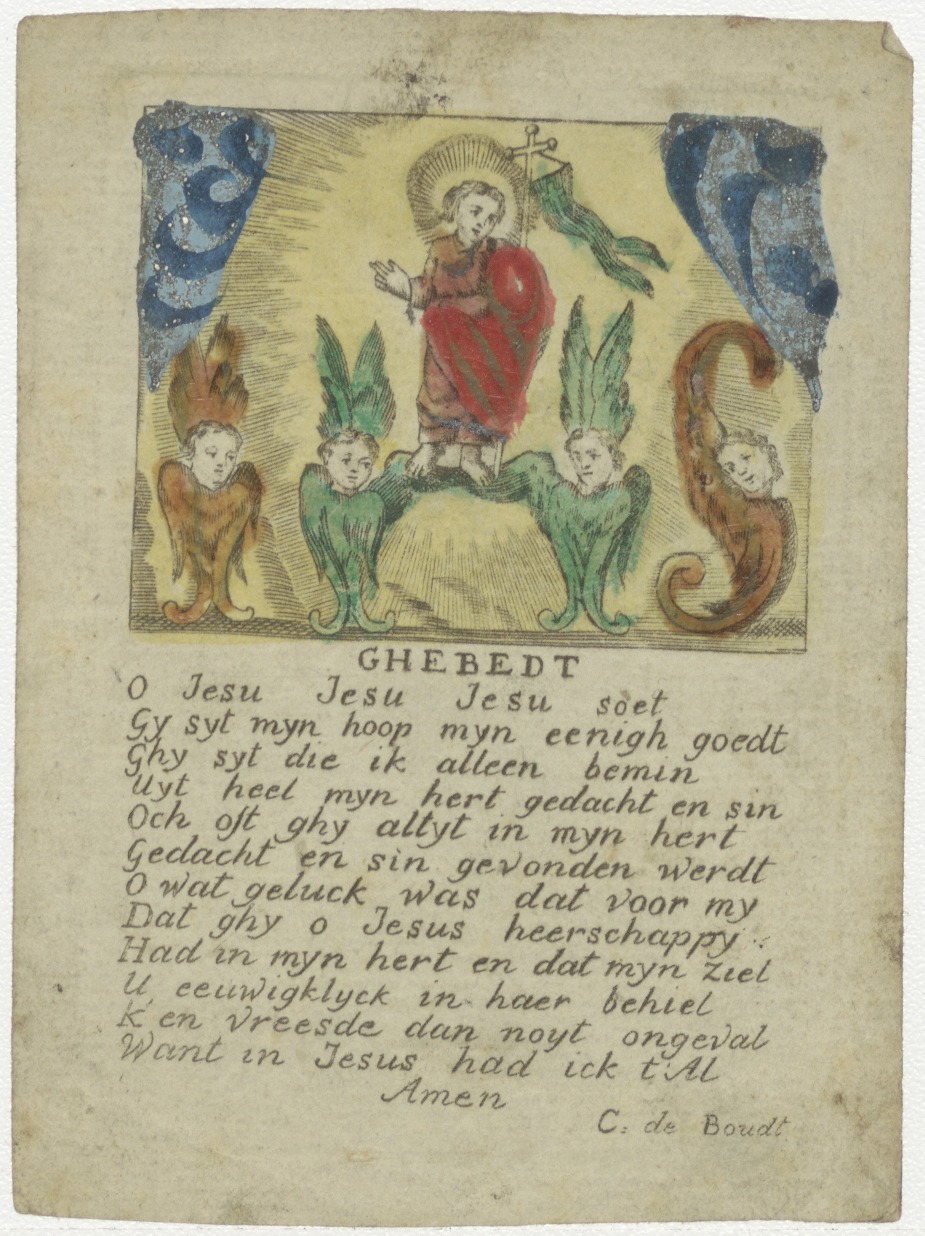 GHEBEDT
O Jesu Jesu Jesu soet
Gy syt myn hoop myn eenigh goedt
Ghy syt die ik alleen bemin
Uyt heel myn hert gedacht en sin
Och oft ghy altyt in myn hert
Gedacht en sin gevonden werdt
O wat geluck was dat voor my
Dat ghy o Jesus heerschappy
Had in myn hert en dat myn ziel
U eeuwigklyck in haer behiel
K'en vreesde dan noyt ongeval
Want in Jesus had ick t'Al
Amen
C: de Boudt